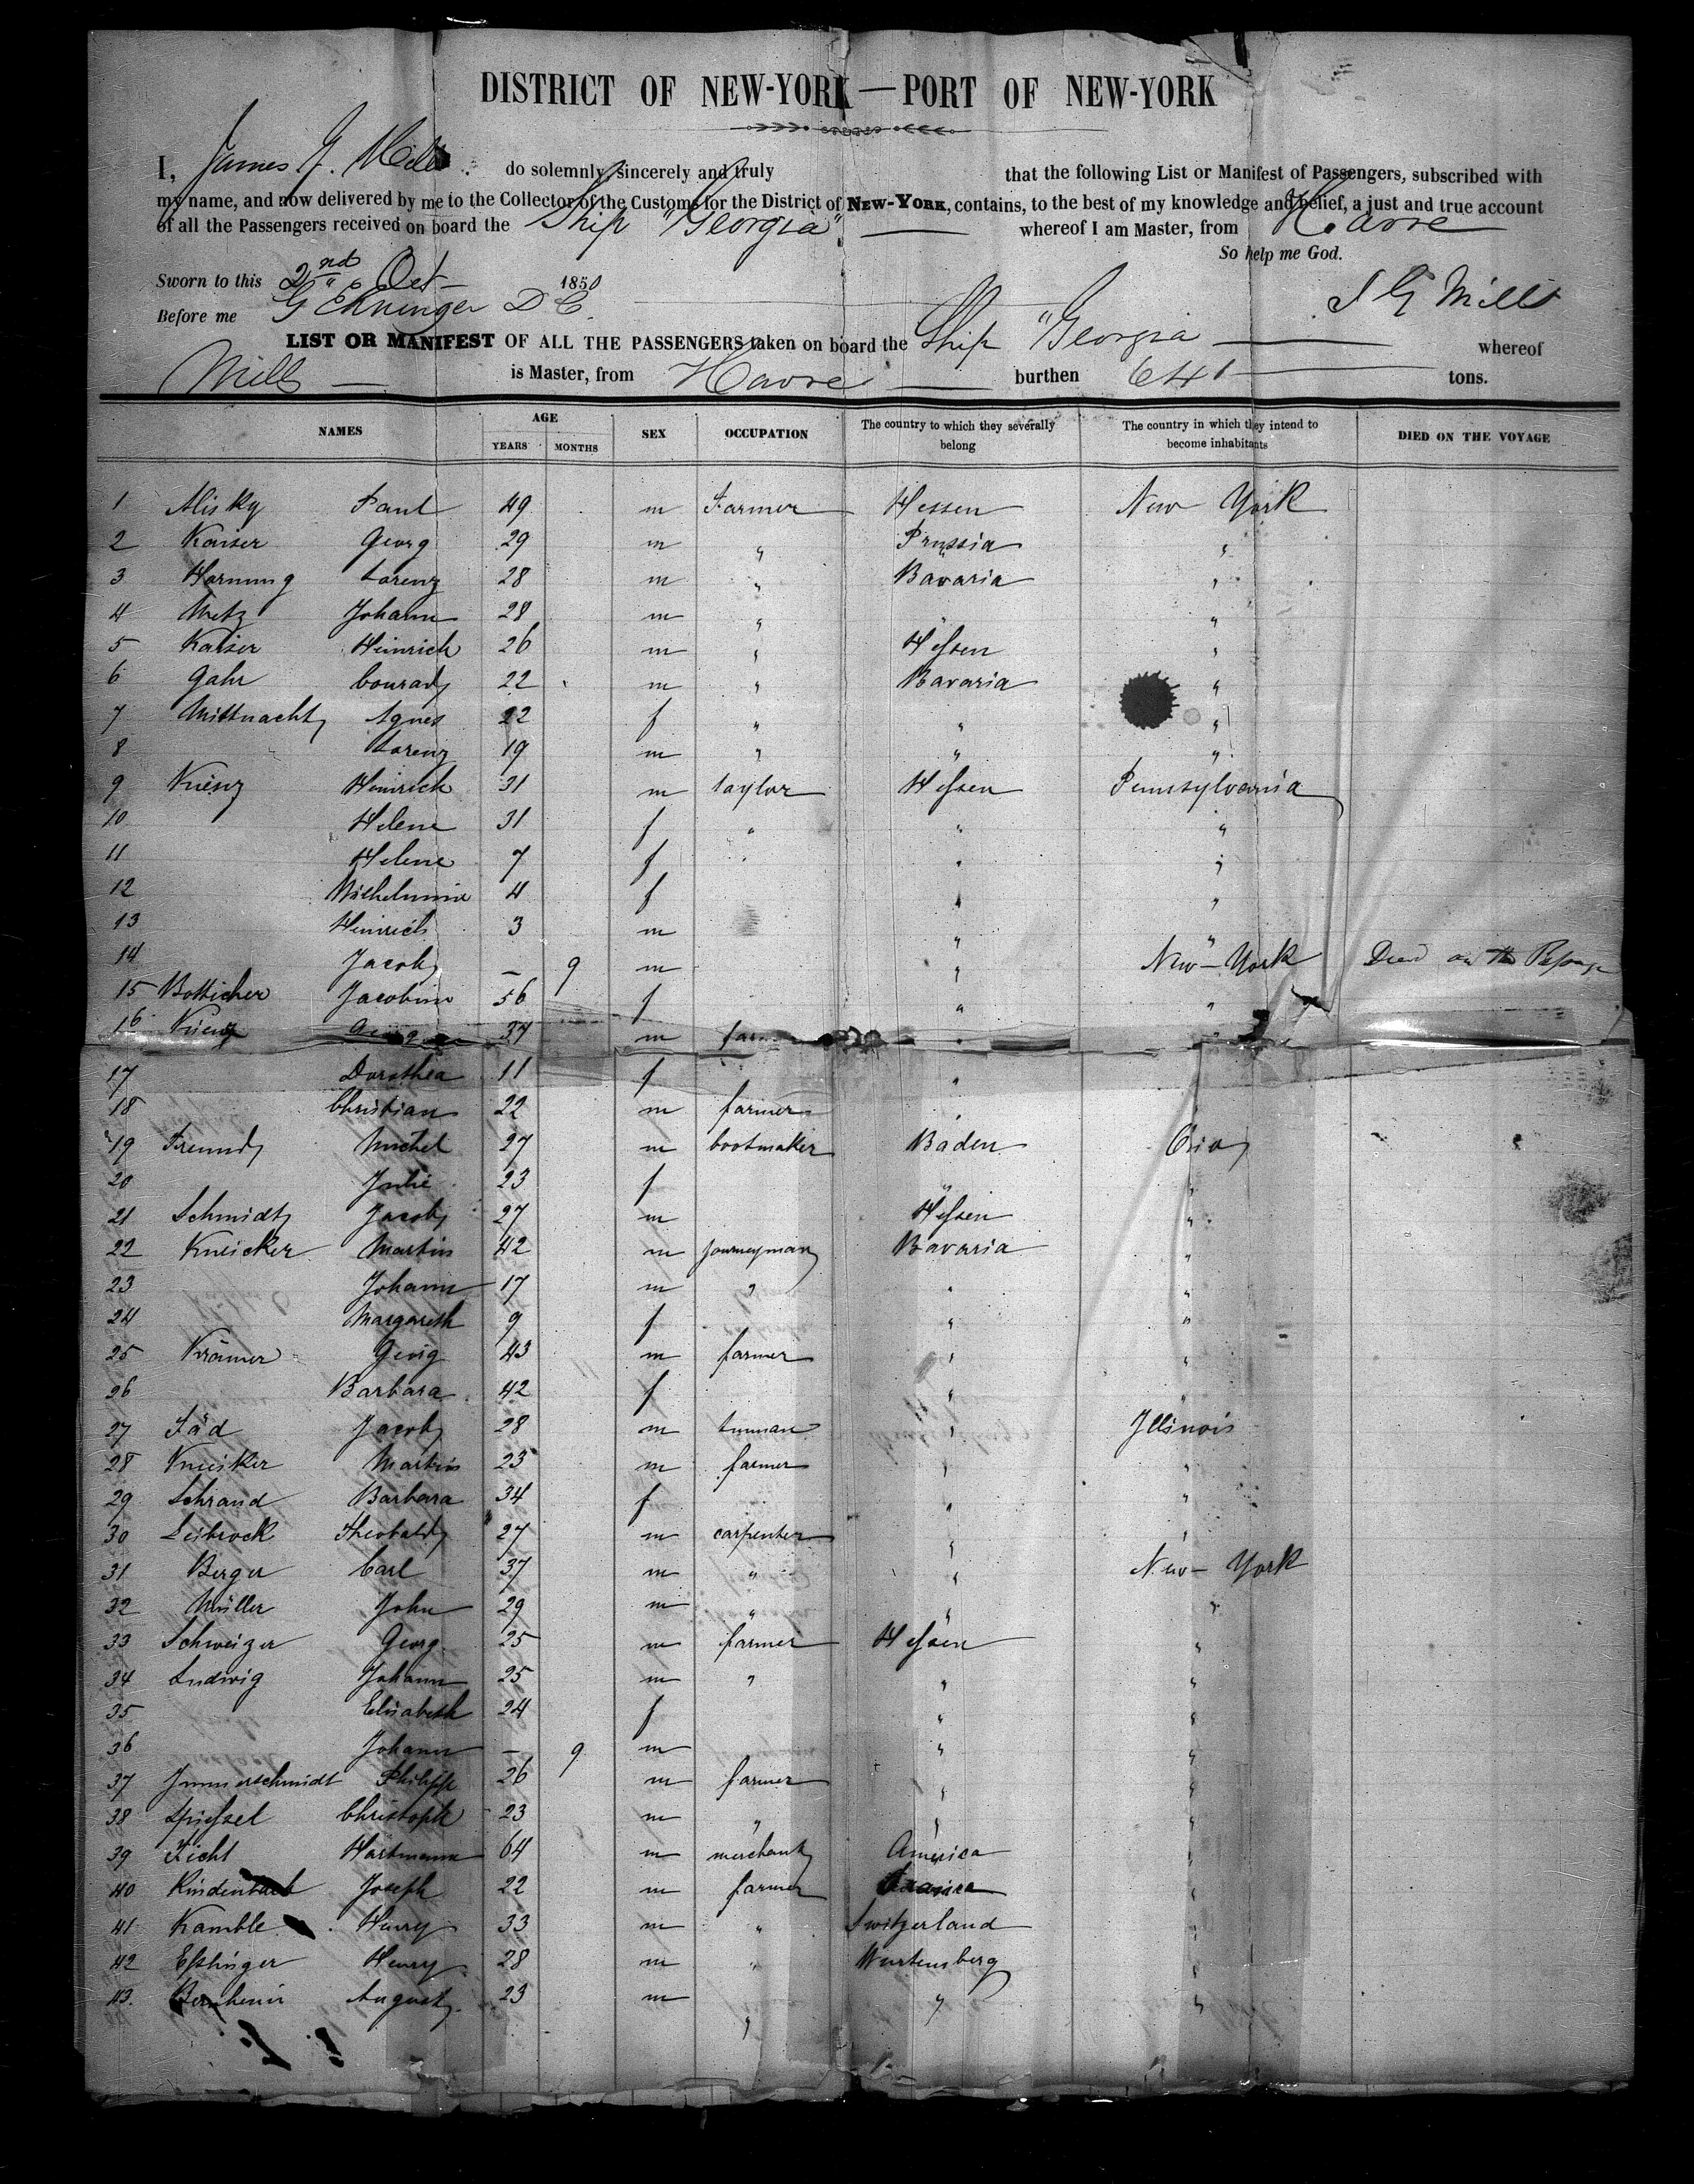 DISTRICT OF NEW-YORK — PORT OF NEW-YORK
I, James G. Mills do solemnly, sincerely and truly that the following List or Manifest of Passengers, subscribed with
my name, and now delivered by me to the Collector of the Customs for the District of NEW-YORK, contains, to the best of my knowledge and belief, a just and true account
of all the Passengers received on board the Ship "Georgia" whereof I am Master, from Havre
So help me God.
Sworn to this 2nd Oct 1850
Before me G Ehninger D C. J G Mills
LIST OR MANIFEST OF ALL THE PASSENGERS taken on board the Ship "Georgia whereof
Mills is Master, from Havre burthen 641 tons.
NAMES AGE YEARS MONTHS SEX OCCUPATION The country to which they severally belong The country in which they intend to become inhabitants DIED ON THE VOYAGE
1 Misky Paul 49 m Farmer Hessen New York
2 Kaiser Georg 29 m " Prussia "
3 Hornung Lorenz 28 m " Bavaria "
4 Metz Johann 28 m " " "
5 Kaiser Heinrich 26 m " Hessen "
6 Gahr Conrad 22 m " Bavaria "
7 Mittnacht Agnes 22 f " " "
8 Lorenz 19 m " " "
9 Kuenz Heinrich 31 m taylor Hessen Pennsylvania
10 Helene 31 f " " "
11 Helene 7 f " "
12 Wilhelmina 4 f " "
13 Heinrich 3 m " "
14 Jacob — 9 m " New-York Died on the Passage
15 Botticher Jacobine 56 f " "
16 Kuenz Georg 37 m " "
17 Dorothea 11 f "
18 Christian 22 m farmer "
19 Freund Michel 27 m bootmaker Baden Ohio
20 Julie 23 f " "
21 Schmidt Jacob 27 m Hessen "
22 Kneicker Martin 42 m journeyman Bavaria "
23 Johann 17 m " " "
24 Margareth 9 f " "
25 Krämer Georg 43 m farmer " "
26 Barbara 42 f " "
27 Fäd Jacob 28 m " Illinois
28 Kneisker Martin 23 m farmer " "
29 Schrand Barbara 34 f " "
30 Leibrock Theobald 27 m carpenter " "
31 Berger Carl 37 m " " New-York
32 Müller John 29 m " " "
33 Schweizer Georg 25 m farmer Hessen "
34 Ludwig Johann 25 m " " "
35 Elisabeth 24 f " "
36 Johann — 9 m " "
37 Immerschmidt Philipp 26 m farmer " "
38 Spiessel Christoph 23 m " " "
39 Licht Hartmann 64 m merchant America "
40 Joseph 22 m farmer "
41 Kamble Henry 33 m " Switzerland "
42 Esslinger Henry 28 m " Wurtemberg "
43. August 23 m " " "